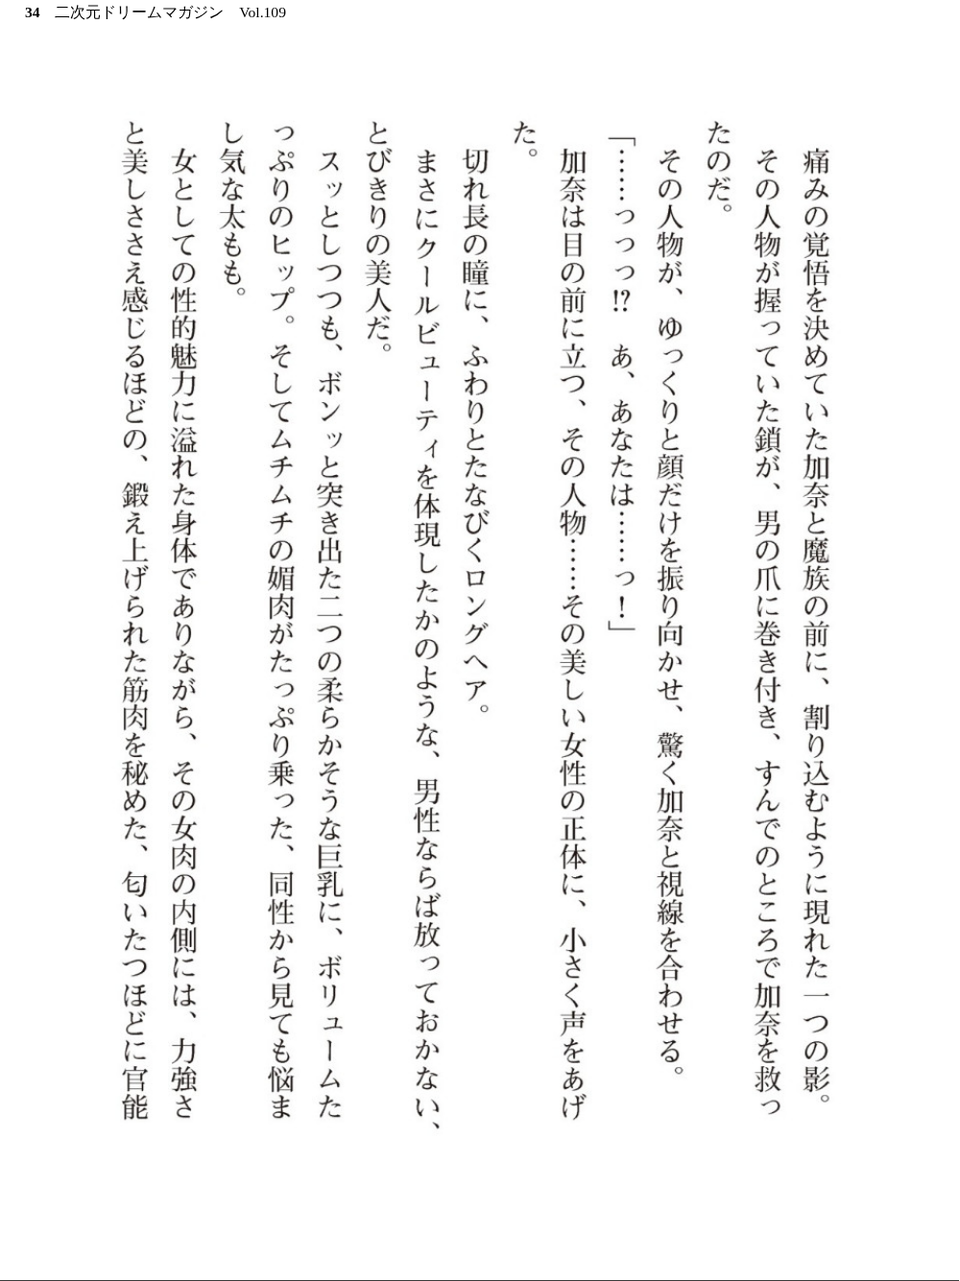 34　二次元ドリームマガジン　Vol.109
　痛みの覚悟を決めていた加奈と魔族の前に、割り込むように現れた一つの影。
　その人物が握っていた鎖が、男の爪に巻き付き、すんでのところで加奈を救っ
たのだ。
　その人物が、ゆっくりと顔だけを振り向かせ、驚く加奈と視線を合わせる。
「……っっっ!?　あ、あなたは……っ！」
　加奈は目の前に立つ、その人物……その美しい女性の正体に、小さく声をあげ
た。
　切れ長の瞳に、ふわりとたなびくロングヘア。
　まさにクールビューティを体現したかのような、男性ならば放っておかない、
とびきりの美人だ。
　スッとしつつも、ボンッと突き出た二つの柔らかそうな巨乳に、ボリュームた
っぷりのヒップ。そしてムチムチの媚肉がたっぷり乗った、同性から見ても悩ま
し気な太もも。
　女としての性的魅力に溢れた身体でありながら、その女肉の内側には、力強さ
と美しささえ感じるほどの、鍛え上げられた筋肉を秘めた、匂いたつほどに官能